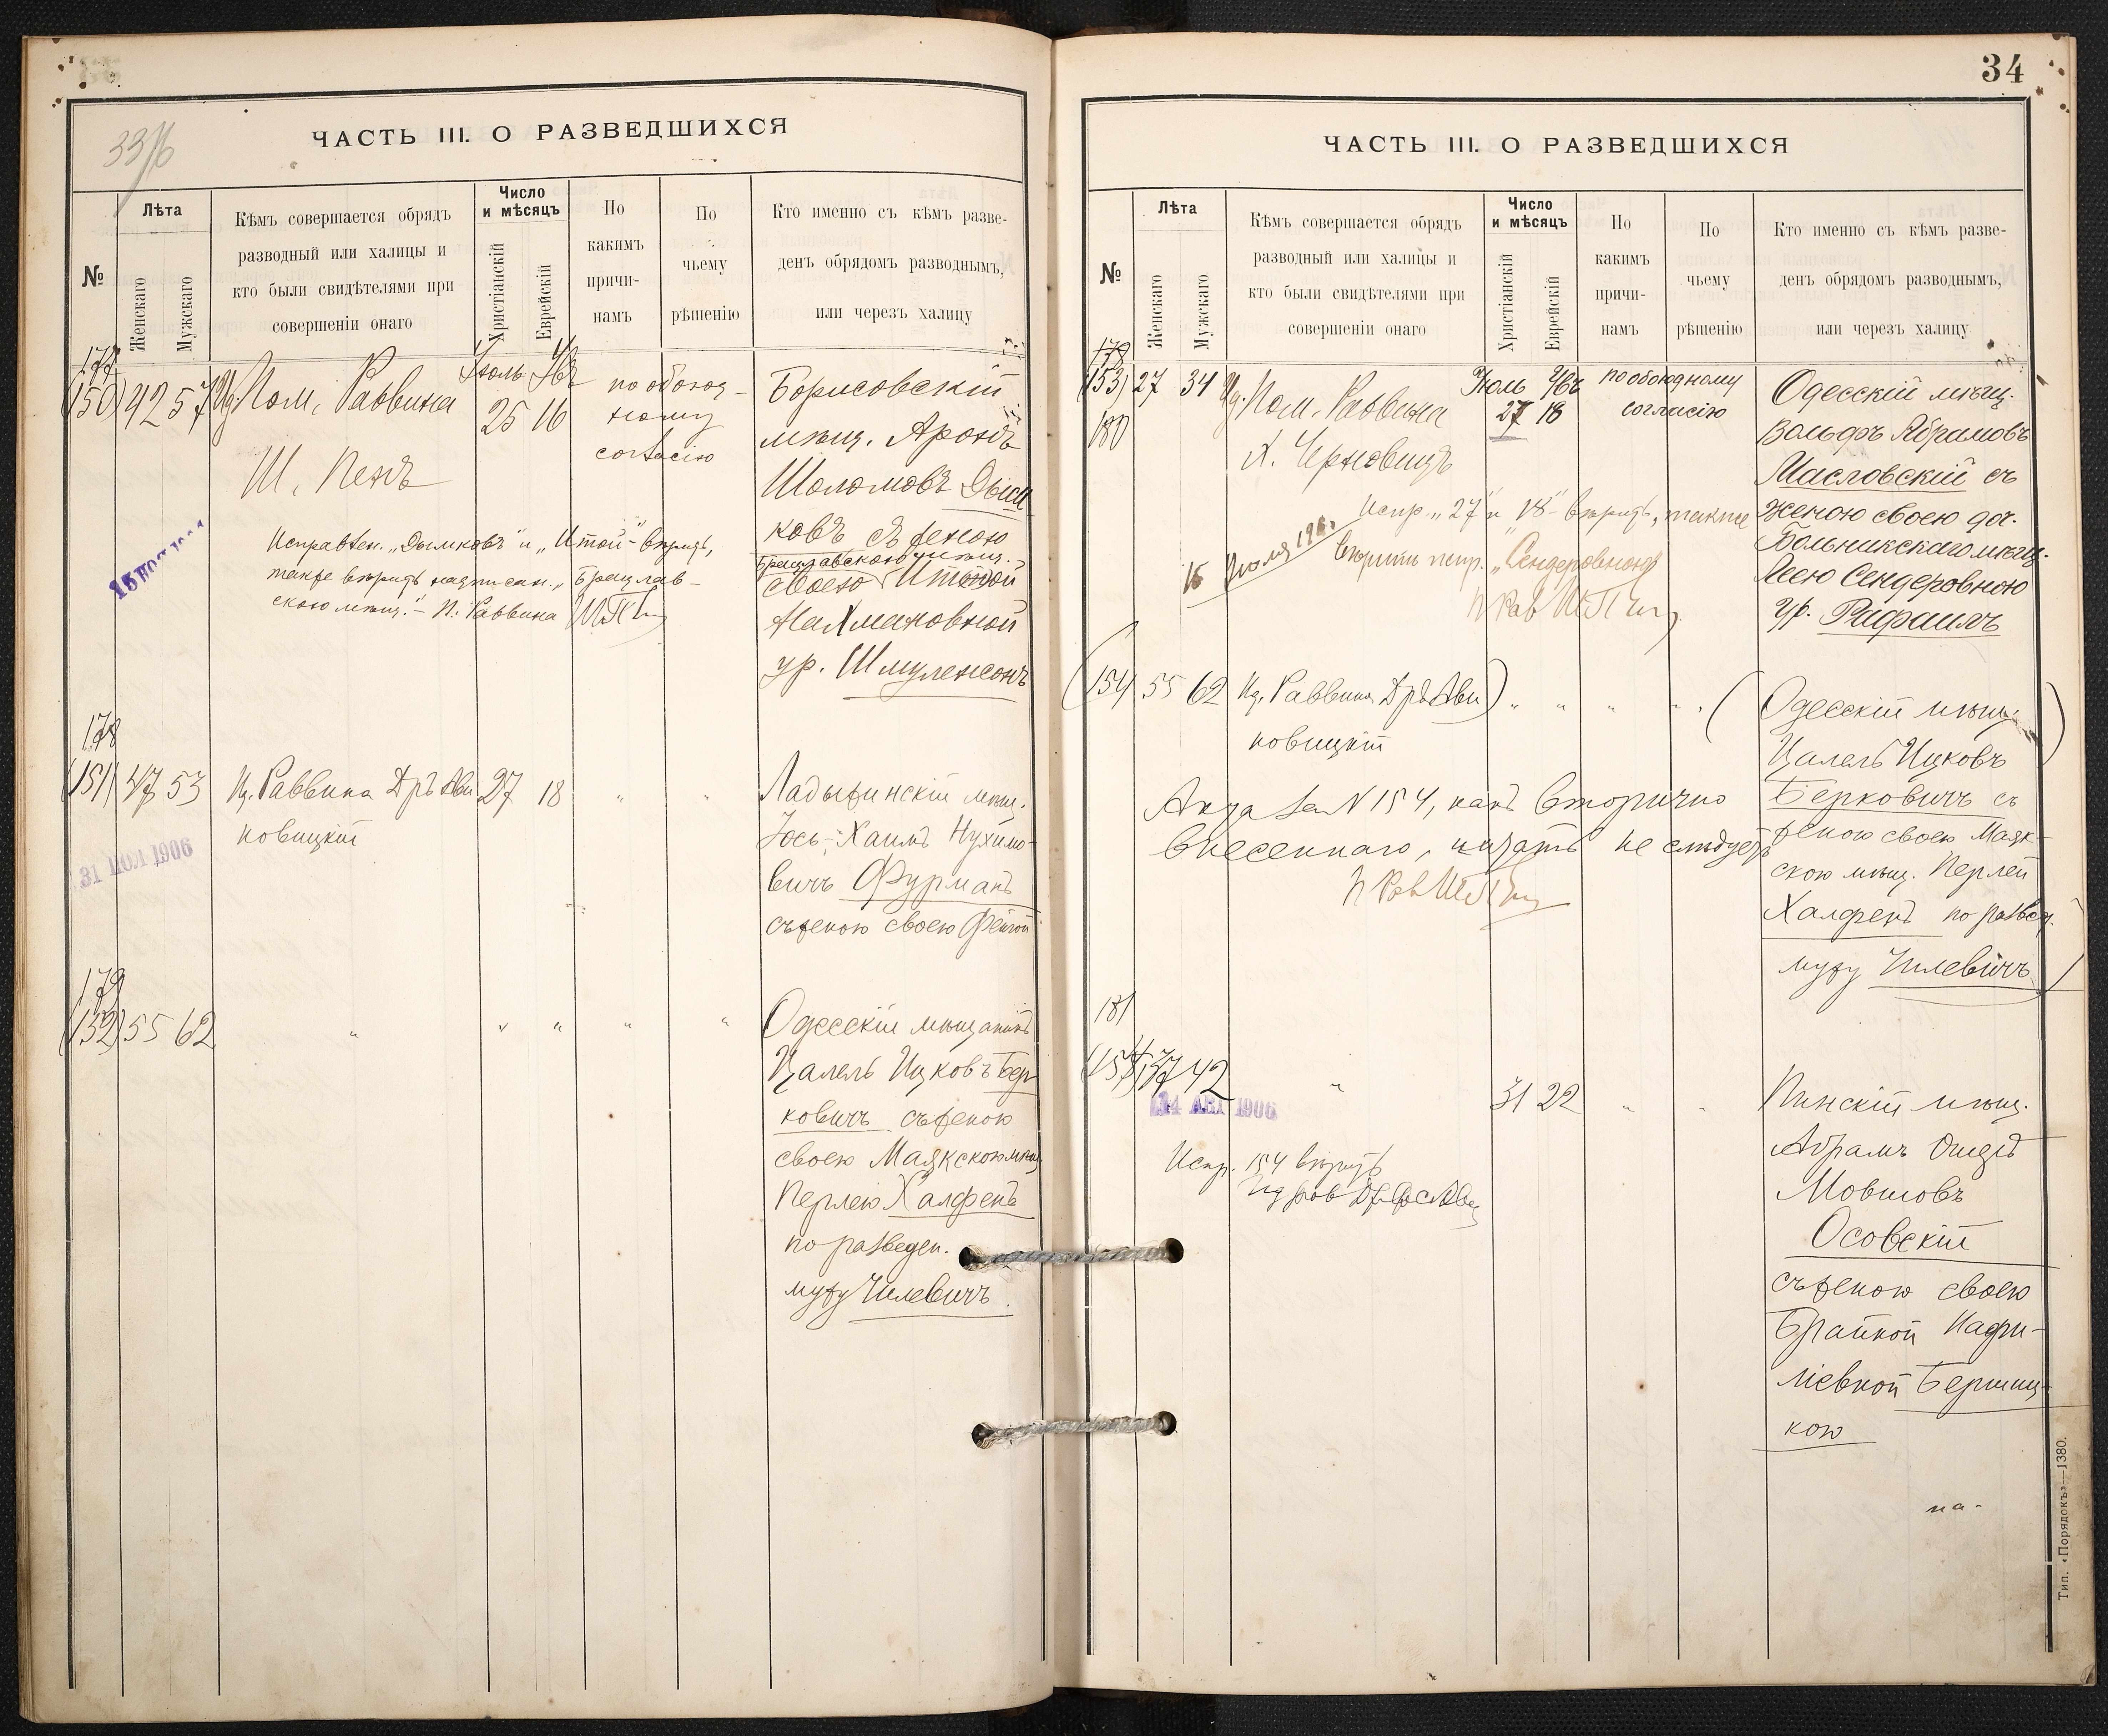 33/6
ЧАСТЬ III. О РАЗВЕДШИХСЯ
№
Лѣта
Женскаго
Мужскаго
Кѣмъ совершается обрядъ
разводный или халицы и
кто были свидѣтелями при
совершеніи онаго
Число
и мѣсяцъ
Христіанскій
Еврейскій
По
какимъ
причи-
намъ
По
чьему
рѣшенію
Кто именно съ кѣмъ разве-
денъ обрядомъ разводнымъ,
или черезъ халицу
177
(150) 42 57 Ид. Пом. Раввина
Ш. Пенъ
Іюль Явъ
25 16
по обоюд-
ному
согласію
Борисовскій
мѣщ. Аронъ
Шоломовъ Дым
ковъ съ женою
Брацлавскою мѣщ.
своею Итой
Нахмановной
ур. Шмуленсонъ
Исправлен. „Дымковъ" и „Итой" - вѣрить,
также вѣрить надписан. „Брацлав-
скою мѣщ." - П. Раввина
178
(151) 47 53 Ид. Раввина Дръ Ави
новицкій
27 18 " "
31 1906
Ладыжинскій мѣщ.
Іось-Хаимъ Нухимо-
вичъ Фурманъ
съ женою своею Фейгой
179
(152) 55 62 " " " " "
Одесскій мѣщанинъ
Цалель Ицковъ Бер
ковичъ съ женою
своею Маякскою мѣщ.
Перлею Халфенъ
по разведен.
мужу Чилевичъ.
34
ЧАСТЬ III. О РАЗВЕДШИХСЯ
№
Лѣта
Женскаго
Мужскаго
Кѣмъ совершается обрядъ
разводный или халицы и
кто были свидѣтелями при
совершеніи онаго
Число
и мѣсяцъ
Христіанскій
Еврейскій
По
какимъ
причи-
намъ
По
чьему
рѣшенію
Кто именно съ кѣмъ разве-
денъ обрядомъ разводнымъ,
или черезъ халицу
178
(153) 27 34 Ид. Пом. Раввина
180
Х. Черновицъ
Іюль Явъ
27 18
по обоюдному
согласію
Одесскій мѣщ.
Вольфъ Абрамовъ
Масловскій съ
женою своею доч.
мѣщ.
Леею Сендеровною
ур. Рафаилъ
Испр. „27" и „18" - вѣрить, также
вѣрить испр. „Сендеровною"
(154) 55 62 Ид. Раввина Дръ Ави)
новицкій
" " " " (
Одесскій мѣщ.
Цалель Ицковъ
Берковичъ съ
женою своею Маяк-
скою мѣщ. Перлей
Халфенъ по развед.
мужу Чилевичъ
Акта за N 154, какъ вторично
внесеннаго, читать не слѣдуетъ
181
(154) 37 42 " 31 22 " "
1906
Испр. 154 вѣрить
Пинскій мѣщ.
Абрамъ Ошеръ
Мовшовъ
Осовскій
съ женою своею
Брайной Нафту-
ліевной Бершиц-
кою
на-
Тип. «Порядокъ»—1380.